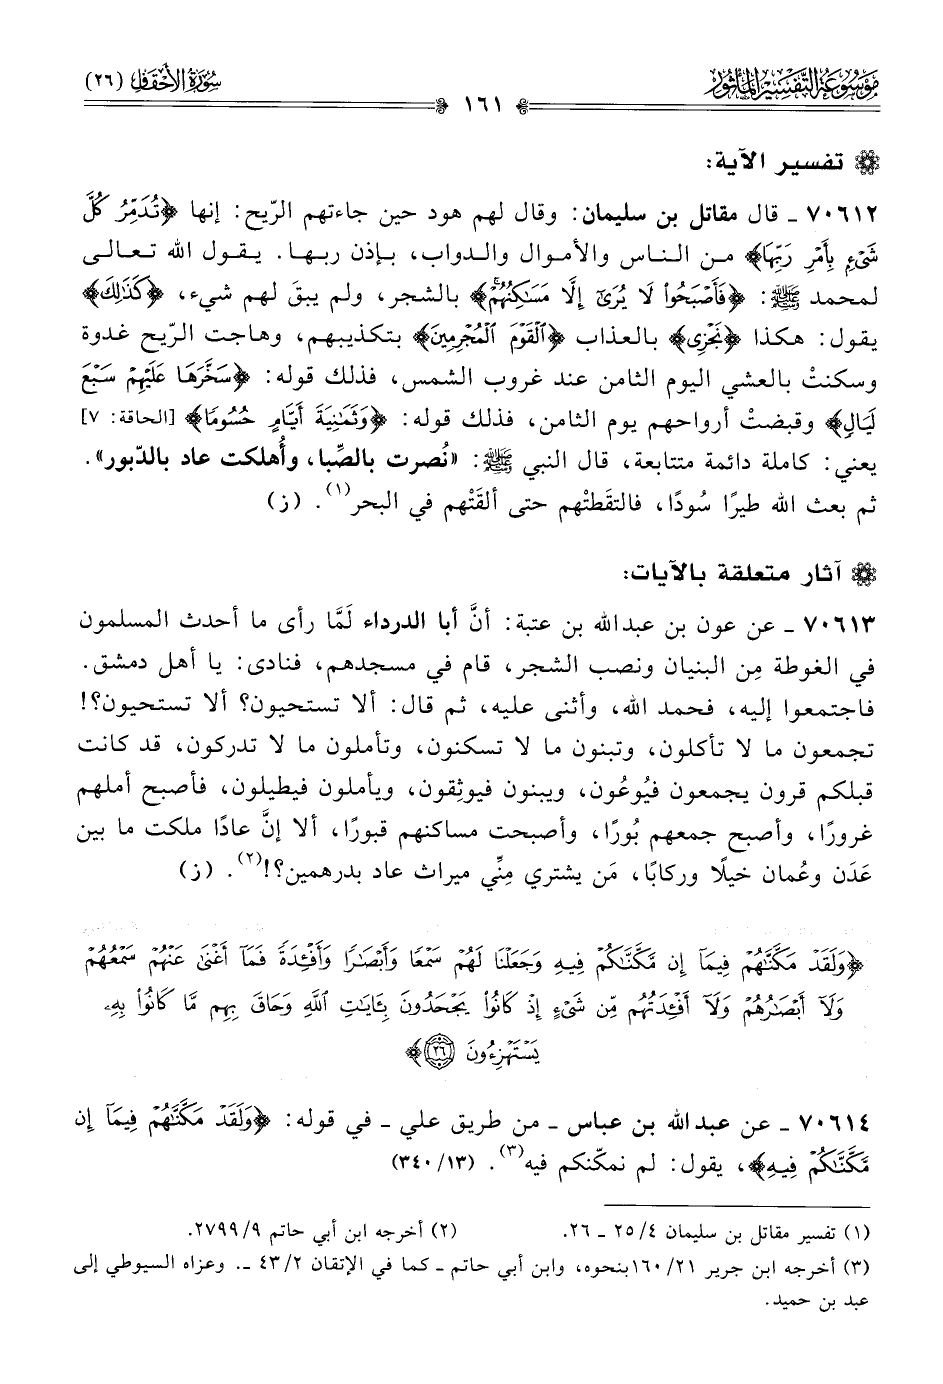 مَوْسُوعَةُ التَّفْسِيرِ المَأْثُورِ
١٦١
سُورَةُ الأَحْقَافِ (٢٦)
تفسير الآية:
٧٠٦١٢ ـ قال مقاتل بن سليمان: وقال لهم هود حين جاءتهم الرّيح: إنها ﴿تُدَمِّرُ كُلَّ
شَيْءٍ بِأَمْرِ رَبِّهَا﴾ من الناس والأموال والدواب، بإذن ربها. يقول الله تعالى
لمحمد ﷺ: ﴿فَأَصْبَحُوا۟ لَا يُرَىٰٓ إِلَّا مَسَـٰكِنُهُمْ﴾ بالشجر، ولم يبقَ لهم شيء، ﴿كَذَٰلِكَ﴾
يقول: هكذا ﴿نَجْزِى﴾ بالعذاب ﴿ٱلْقَوْمَ ٱلْمُجْرِمِينَ﴾ بتكذيبهم، وهاجت الرّيح غدوة
وسكنتْ بالعشي اليوم الثامن عند غروب الشمس، فذلك قوله: ﴿سَخَّرَهَا عَلَيْهِمْ سَبْعَ
لَيَالٍ﴾ وقبضتْ أرواحهم يوم الثامن، فذلك قوله: ﴿وَثَمَـٰنِيَةَ أَيَّامٍ حُسُومًا﴾ [الحاقة: ٧]
يعني: كاملة دائمة متتابعة، قال النبي ﷺ: «نُصرت بالصِّبا، وأُهلكت عاد بالدّبور».
ثم بعث الله طيرًا سُودًا، فالتقطتْهم حتى ألقَتْهم في البحر(١). (ز)
آثار متعلقة بالآيات:
٧٠٦١٣ ـ عن عون بن عبدالله بن عتبة: أنَّ أبا الدرداء لَمَّا رأى ما أحدث المسلمون
في الغوطة مِن البنيان ونصب الشجر، قام في مسجدهم، فنادى: يا أهل دمشق.
فاجتمعوا إليه، فحمد الله، وأثنى عليه، ثم قال: ألا تستحيون؟ ألا تستحيون؟!
تجمعون ما لا تأكلون، وتبنون ما لا تسكنون، وتأملون ما لا تدركون، قد كانت
قبلكم قرون يجمعون فيُوعُون، ويبنون فيوثِقون، ويأملون فيطيلون، فأصبح أملهم
غرورًا، وأصبح جمعهم بُورًا، وأصبحت مساكنهم قبورًا، ألا إنَّ عادًا ملكت ما بين
عَدَن وعُمان خيلًا وركابًا، مَن يشتري مِنِّي ميراث عاد بدرهمين؟!(٢). (ز)
﴿وَلَقَدْ مَكَّنَّـٰهُمْ فِيمَآ إِن مَّكَّنَّـٰكُمْ فِيهِ وَجَعَلْنَا لَهُمْ سَمْعًا وَأَبْصَـٰرًا وَأَفْـِٔدَةً فَمَآ أَغْنَىٰ عَنْهُمْ سَمْعُهُمْ
وَلَآ أَبْصَـٰرُهُمْ وَلَآ أَفْـِٔدَتُهُم مِّن شَىْءٍ إِذْ كَانُوا۟ يَجْحَدُونَ بِـَٔايَـٰتِ ٱللَّهِ وَحَاقَ بِهِم مَّا كَانُوا۟ بِهِۦ
يَسْتَهْزِءُونَ ٢٦﴾
٧٠٦١٤ ـ عن عبدالله بن عباس ـ من طريق علي ـ في قوله: ﴿وَلَقَدْ مَكَّنَّـٰهُمْ فِيمَآ إِن
مَّكَّنَّـٰكُمْ فِيهِ﴾، يقول: لم نمكّنكم فيه(٣). (١٣/ ٣٤٠)
(١) تفسير مقاتل بن سليمان ٤/ ٢٥ ـ ٢٦. (٢) أخرجه ابن أبي حاتم ٩/ ٢٧٩٩.
(٣) أخرجه ابن جرير ٢١/ ١٦٠بنحوه، وابن أبي حاتم ـ كما في الإتقان ٢/ ٤٣ ـ. وعزاه السيوطي إلى
عبد بن حميد.